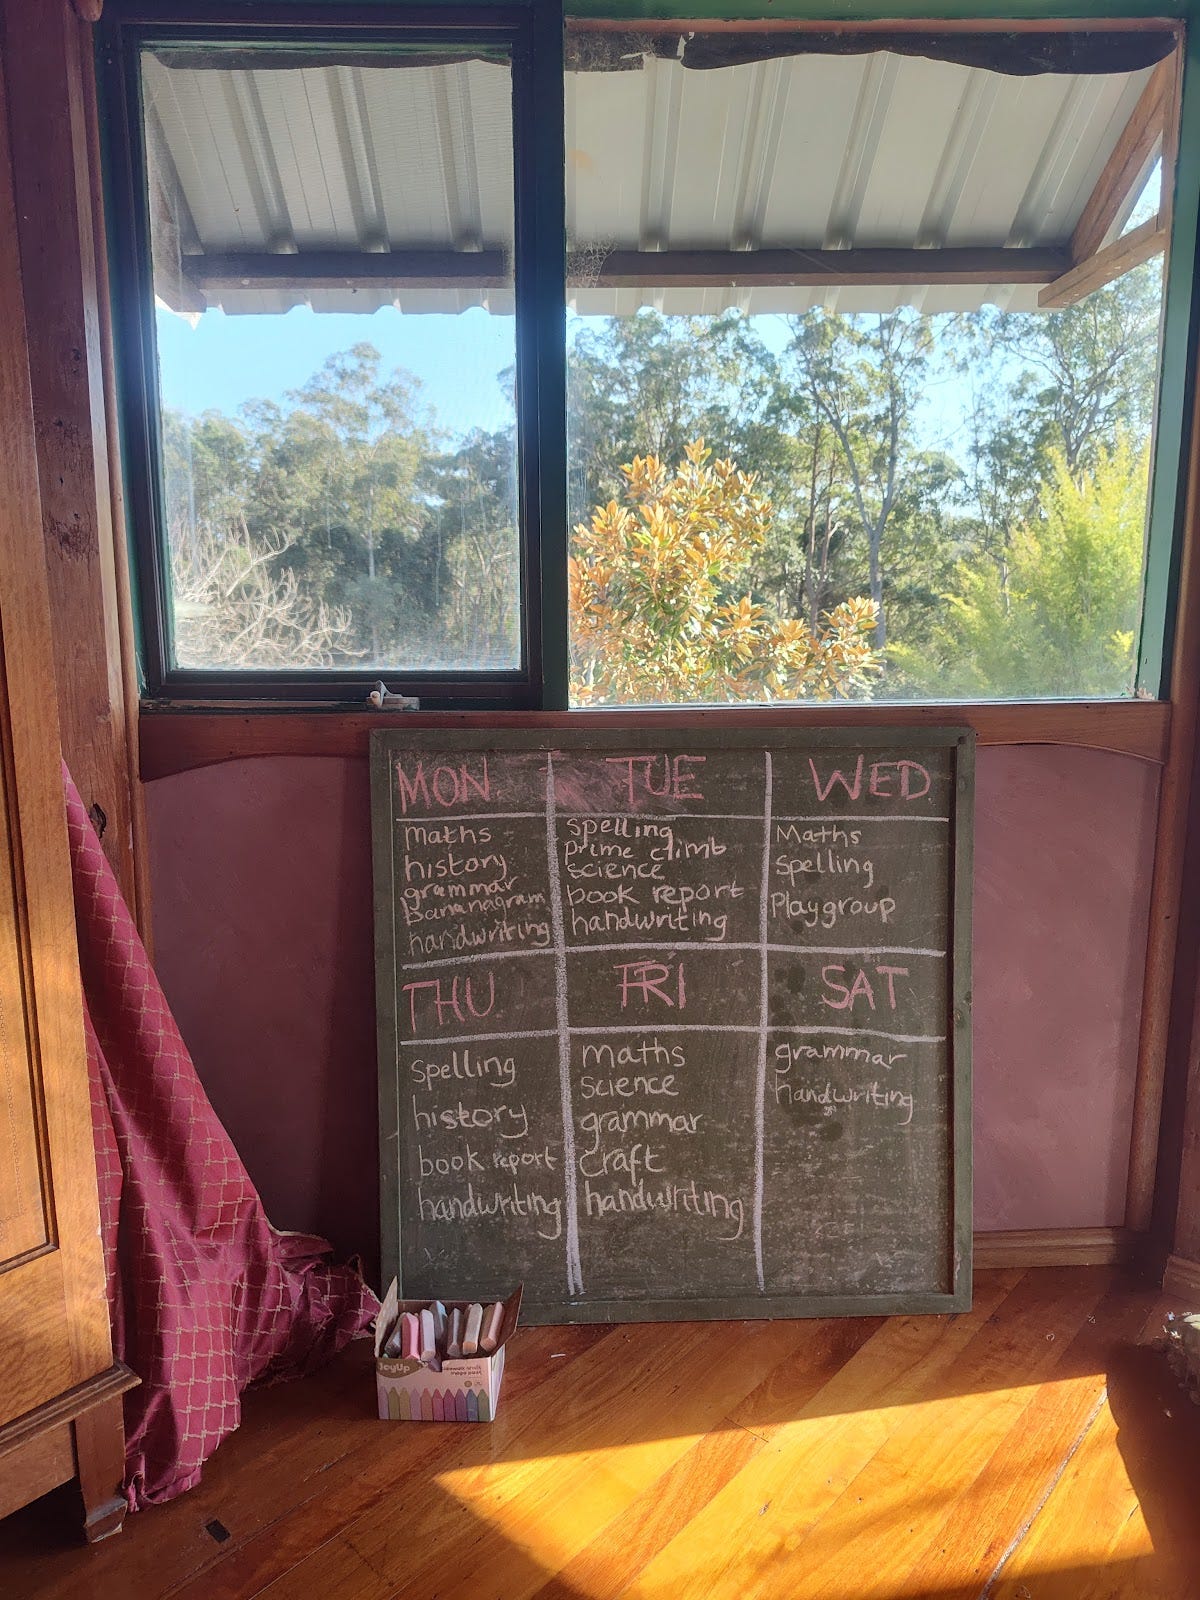 MON
TUE
WED
maths
history
grammar
bananagram
handwriting
spelling
prime climb
science
book report
handwriting
Maths
Spelling
Playgroup
THU
FRI
SAT
spelling
history
book report
handwriting
maths
science
grammar
craft
handwriting
grammar
handwriting
JoyUp